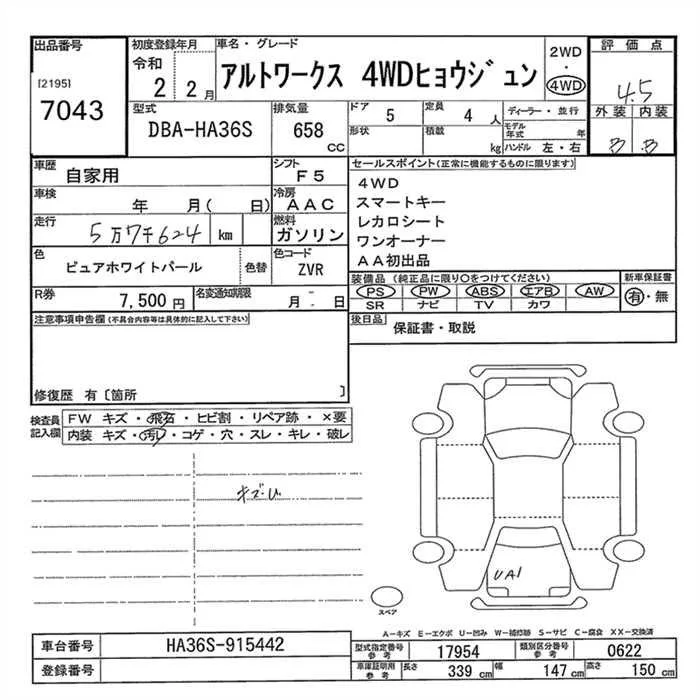 出品番号 初度登録年月 車名・グレード 2WD・4WD 評価点
[2195] 7043 令和 2 2月 アルトワークス 4WDヒョウジュン 4.5
型式 排気量 ドア 5 定員 4人 ディーラー・並行 外装 内装
DBA-HA36S 658 CC 形状 積載 kg モデル年式 年 ハンドル 左・右 B B
車歴 自家用 シフト F5 セールスポイント(正常に機能するものに限ります)
車検 年 月( 日) 冷房 AAC 4WD
スマートキー
走行 5万7千624 km 燃料 ガソリン レカロシート
ワンオーナー
色 ピュアホワイトパール 色替 色コード ZVR AA初出品
装備品(純正品に限り○をつけてください) 新車保証書
R券 7,500円 名変通知期限 月 - 日 PS PW ABS エアB AW 有・無
SR ナビ TV カワ
注意事項申告欄(不具合内容等は具体的に記入して下さい) 後日品 保証書・取説
修復歴 有〔箇所 〕
検査員記入欄 FW キズ・飛石・ヒビ割・リペア跡・×要
内装 キズ・汚レ・コゲ・穴・スレ・キレ・破レ
キズ・ひ
UA1
スペア
A-キズ E-エクボ U-凹み W-補修跡 S-サビ C-腐食 XX-交換済
車台番号 HA36S-915442 型式指定番号参考 17954 類別区分番号参考 0622
登録番号 車庫証明用参考 長さ 339 cm 幅 147 cm 高さ 150 cm